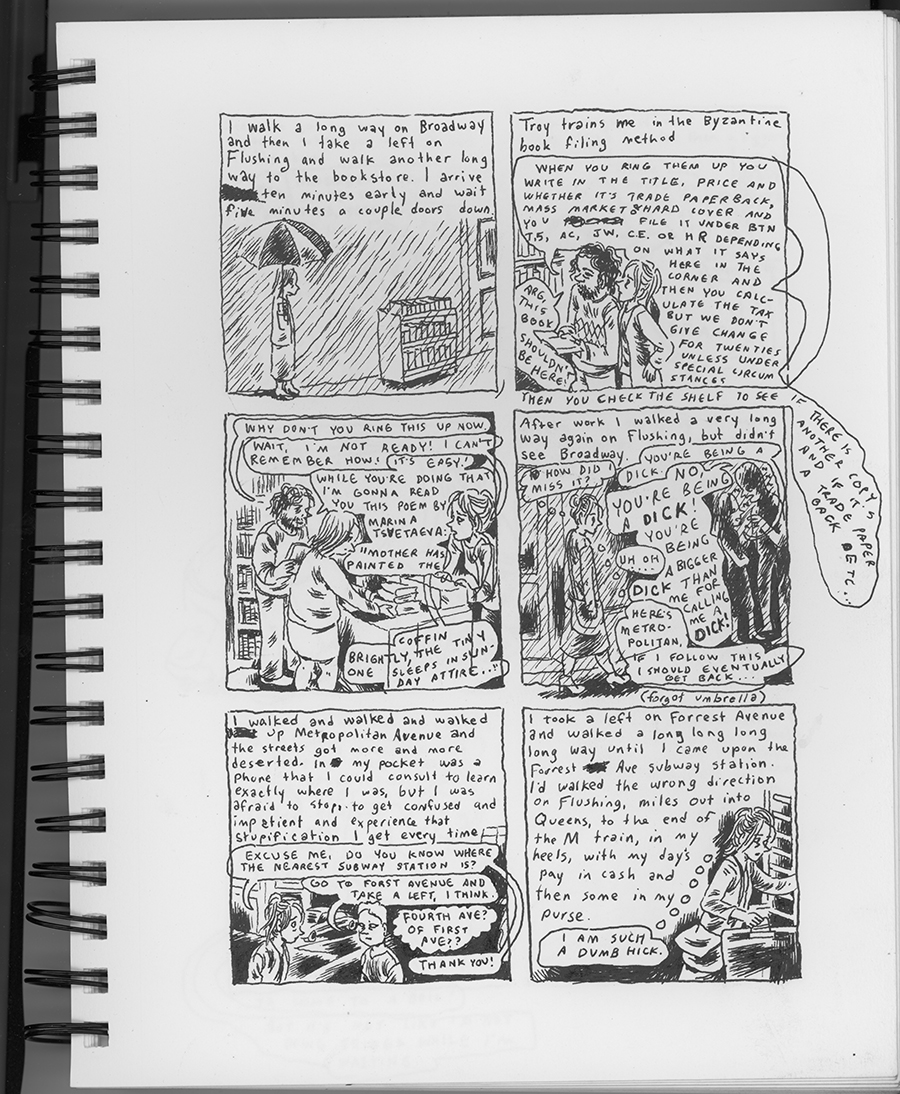 I walk a long way on Broadway
and then I take a left on
Flushing and walk another long
way to the bookstore. I arrive
ten minutes early and wait
five minutes a couple doors down.
Troy trains me in the Byzantine
book filing method
WHEN YOU RING THEM UP YOU
WRITE IN THE TITLE, PRICE AND
WHETHER IT'S TRADE PAPERBACK,
MASS MARKET & HARD COVER AND
YOU FILE IT UNDER BTN
T.S, AC, JW, C.E. OR HR DEPENDING
ON WHAT IT SAYS
HERE IN THE
CORNER AND
THEN YOU CALC-
ULATE THE TAX
BUT WE DON'T
GIVE CHANGE
FOR TWENTIES
UNLESS UNDER
SPECIAL CIRCUM
STANCES
ARG,
THIS
BOOK
SHOULDN'T
BE HERE!
THEN YOU CHECK THE SHELF TO SEE
IF THERE IS
ANOTHER COPY
AND IF IT'S
A TRADE PAPER
BACK ETC...
WHY DON'T YOU RING THIS UP NOW.
WAIT, I'M NOT READY! I CAN'T
REMEMBER HOW!
IT'S EASY!
WHILE YOU'RE DOING THAT
I'M GONNA READ
YOU THIS POEM BY
MARINA
TSVETAEVA:
"MOTHER HAS
PAINTED THE
COFFIN
BRIGHTLY, THE TINY
ONE SLEEPS IN SUN-
DAY ATTIRE..."
After work I walked a very long
way again on Flushing, but didn't
see Broadway.
HOW DID I
MISS IT?
YOU'RE BEING A
DICK.
NO,
YOU'RE BEING
A DICK!
YOU'RE
BEING
A BIGGER
DICK THAN
ME FOR
CALLING
ME A
DICK!
UH OH
HERE'S
METRO-
POLITAN.
IF I FOLLOW THIS
I SHOULD EVENTUALLY
GET BACK...
(forgot umbrella)
I walked and walked and walked
up Metropolitan Avenue and
the streets got more and more
deserted. In my pocket was a
phone that I could consult to learn
exactly where I was, but I was
afraid to stop, to get confused and
impatient and experience that
stupification I get every time
EXCUSE ME, DO YOU KNOW WHERE
THE NEAREST SUBWAY STATION IS?
GO TO FORST AVENUE AND
TAKE A LEFT, I THINK.
FOURTH AVE?
OF FIRST
AVE??
THANK YOU!
I took a left on Forrest Avenue
and walked a long long long
long way until I came upon the
Forrest Ave subway station.
I'd walked the wrong direction
on Flushing, miles out into
Queens, to the end of
the M train, in my
heels, with my day's
pay in cash and
then some in my
purse.
I AM SUCH
A DUMB HICK.